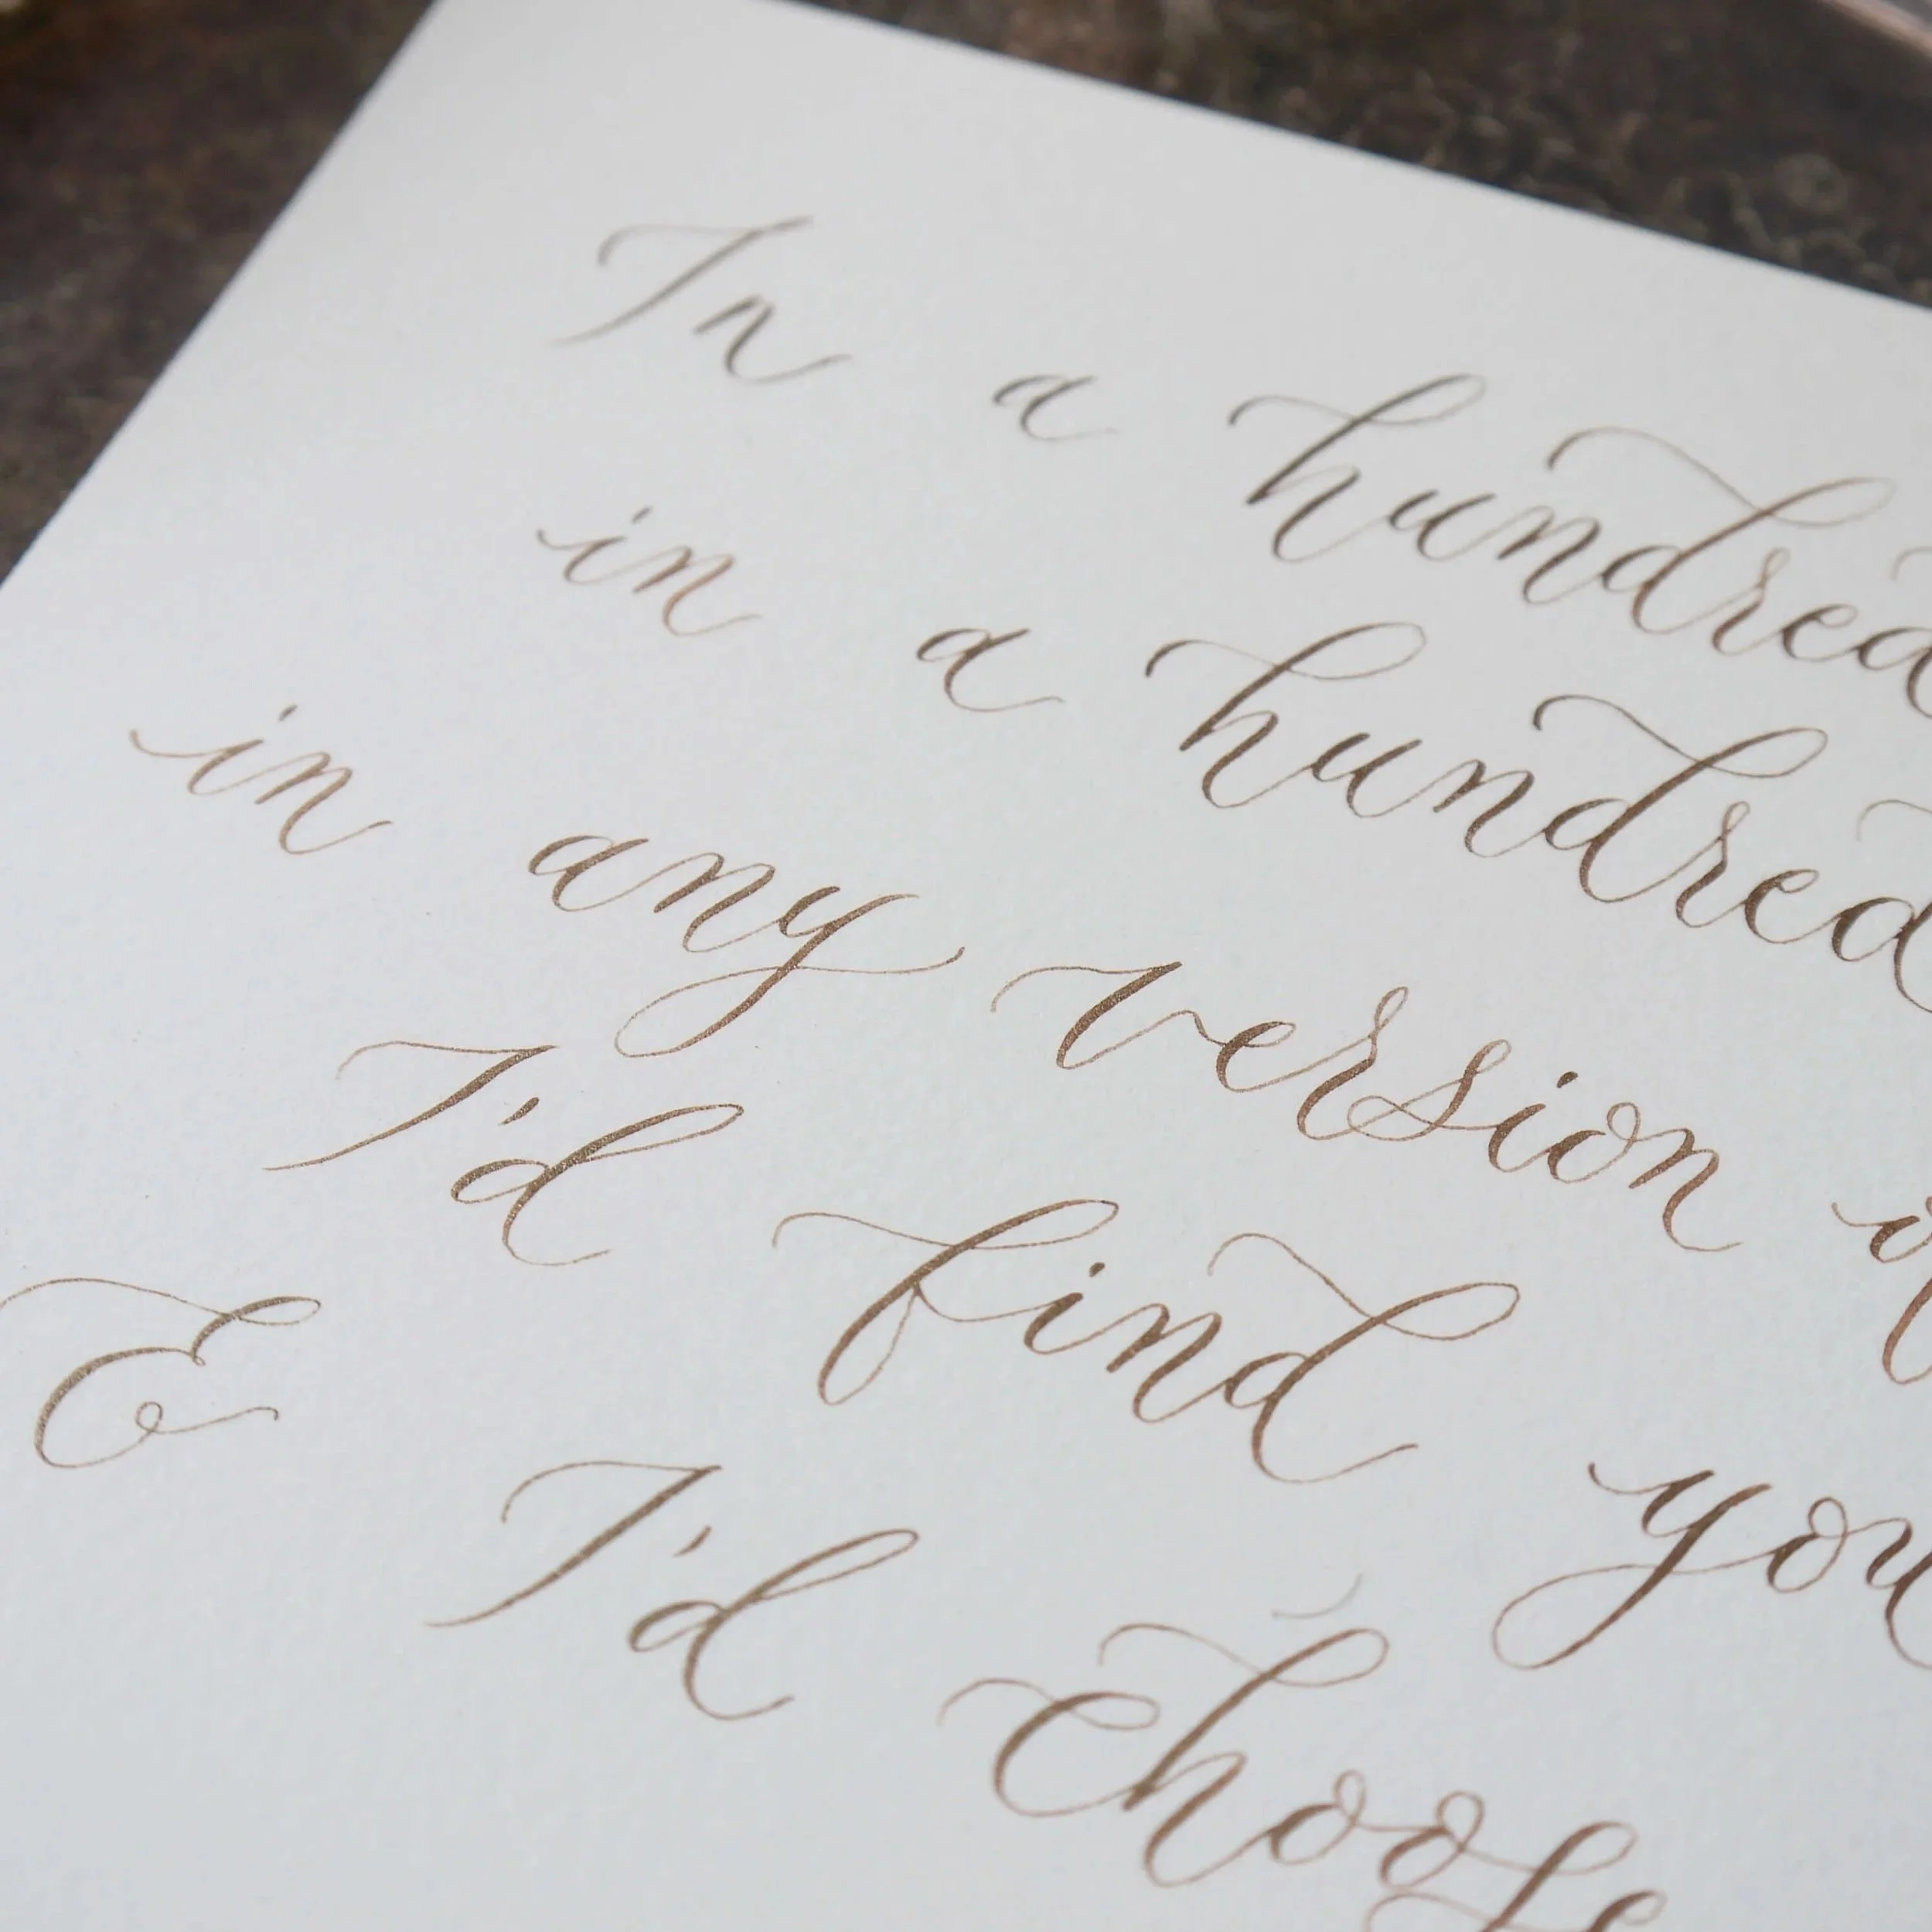 In a hundred
in a hundred
in any version
I'd find you
& I'd choose